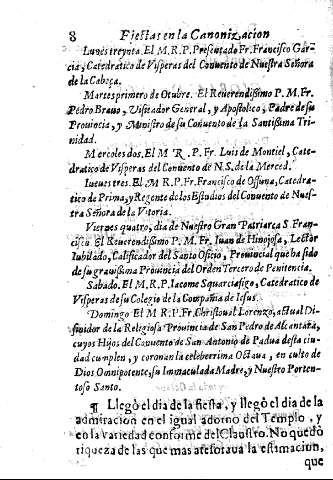 8 Fiestas en la Canonizacion
Lunes treynta. El M.R.P. Presentado Fr. Francisco Garcia, Catedratico de Visperas del Convento de Nuestra Señora
de la Cabeça.
Martes primero de Otubre. El Reverendissimo P. M. Fr.
Pedro Bravo, Visitador General, y Apostolico, Padre de su
Provincia, y Ministro de su Convento de la Santissima Trinidad.
Miercoles dos. El M. R. P. Fr. Luis de Montiel, Catedratico de Visperas del Convento de N. S. de la Merced.
Iueves tres. El M R. P. Fr. Francisco de Ossuna, Catedratico de Prima, y Regente de los Estudios del Convento de Nuestra Señora de la Vitoria.
Viernes quatro, dia de Nuestro Gran Patriarca S. Francisco. El Reverendissimo P. M. Fr. Iuan de Hinojosa, Lector
Iubilado, Calificador del Santo Oficio, Provincial que ha sido
de su gravissima Provincia del Orden Tercero de Penitencia.
Sabado. El M. R. P. Iacome Squarciafigo, Catedratico de
Visperas de su Colegio de la Compañia de Iesus.
Domingo El M R. P. Fr. Christoual Lorenzo, actual Disinidor de la Religiosa Provincia de San Pedro de Alcantara,
cuyos Hijos del Convento de San Antonio de Padua desta ciudad cumplen, y coronan la celeberrima Octava, en culto de
Dios Omnipotente, su Inmaculada Madre, y Nuestro Portentoso Santo.
¶ Llegò el dia de la fiesta, y llegò el dia de la
admiracion en el igual adorno del Templo, y
en la variedad conforme del Claustro. No quedò
riqueza de las que mas atesorava la estimacion,
que